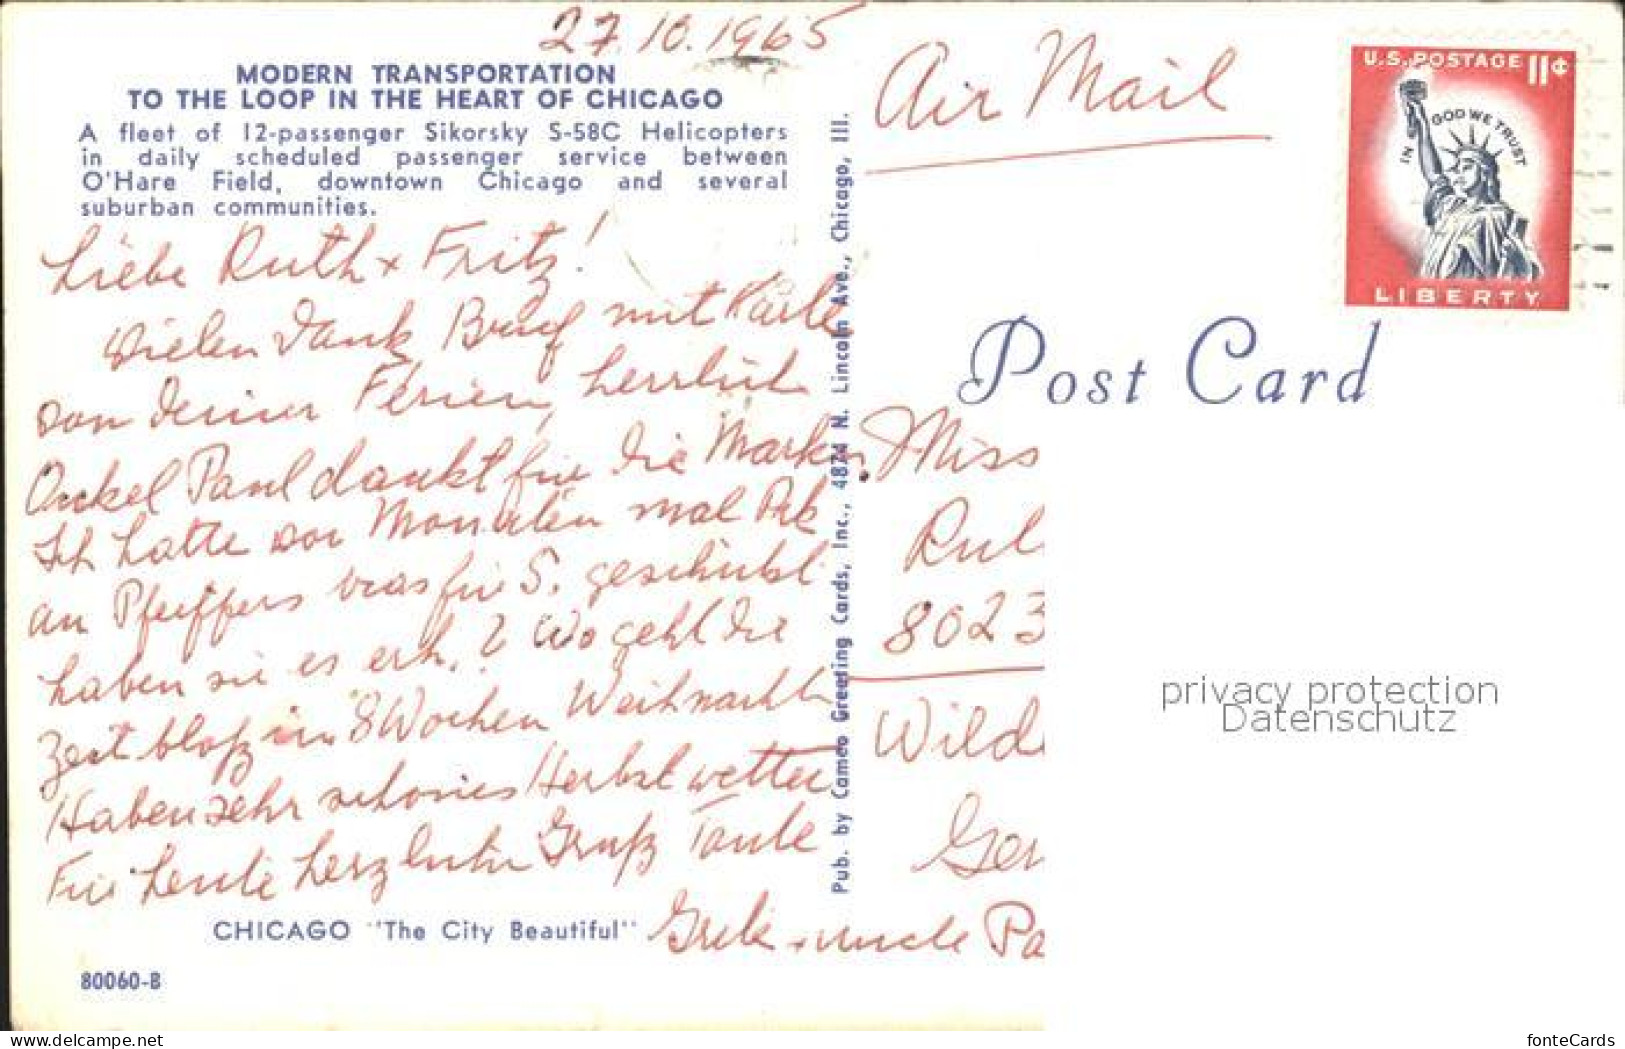 27.10.1965
MODERN TRANSPORTATION
TO THE LOOP IN THE HEART OF CHICAGO
A fleet of 12-passenger Sikorsky S-58C Helicopters
in daily scheduled passenger service between
O'Hare Field, downtown Chicago and several
suburban communities.
Liebe Ruth + Fritz!
Vielen Dank Brief mit Karte
von Deiner Ferien, herrlich
Onkel Paul dankt für die Marken.
Ich hatte vor Monaten mal Pak
an Pfeiffers was für S. geschickt
haben sie es erh. ? Wo geht die
Zeit bloß in 8 Wochen Weihnacht
Haben sehr schönes Herbstwetter
Für heute herzlichen Gruß Tante
Grete + uncle Pa
CHICAGO "The City Beautiful"
80060-B
Pub. by Cameo Greeting Cards, Inc., 4874 N. Lincoln Ave., Chicago, Ill.
Air Mail
U.S. POSTAGE 11¢
IN GOD WE TRUST
LIBERTY
Post Card
Miss
8023
Wild
Ger
privacy protection
Datenschutz
www.delcampe.net
fonteCards